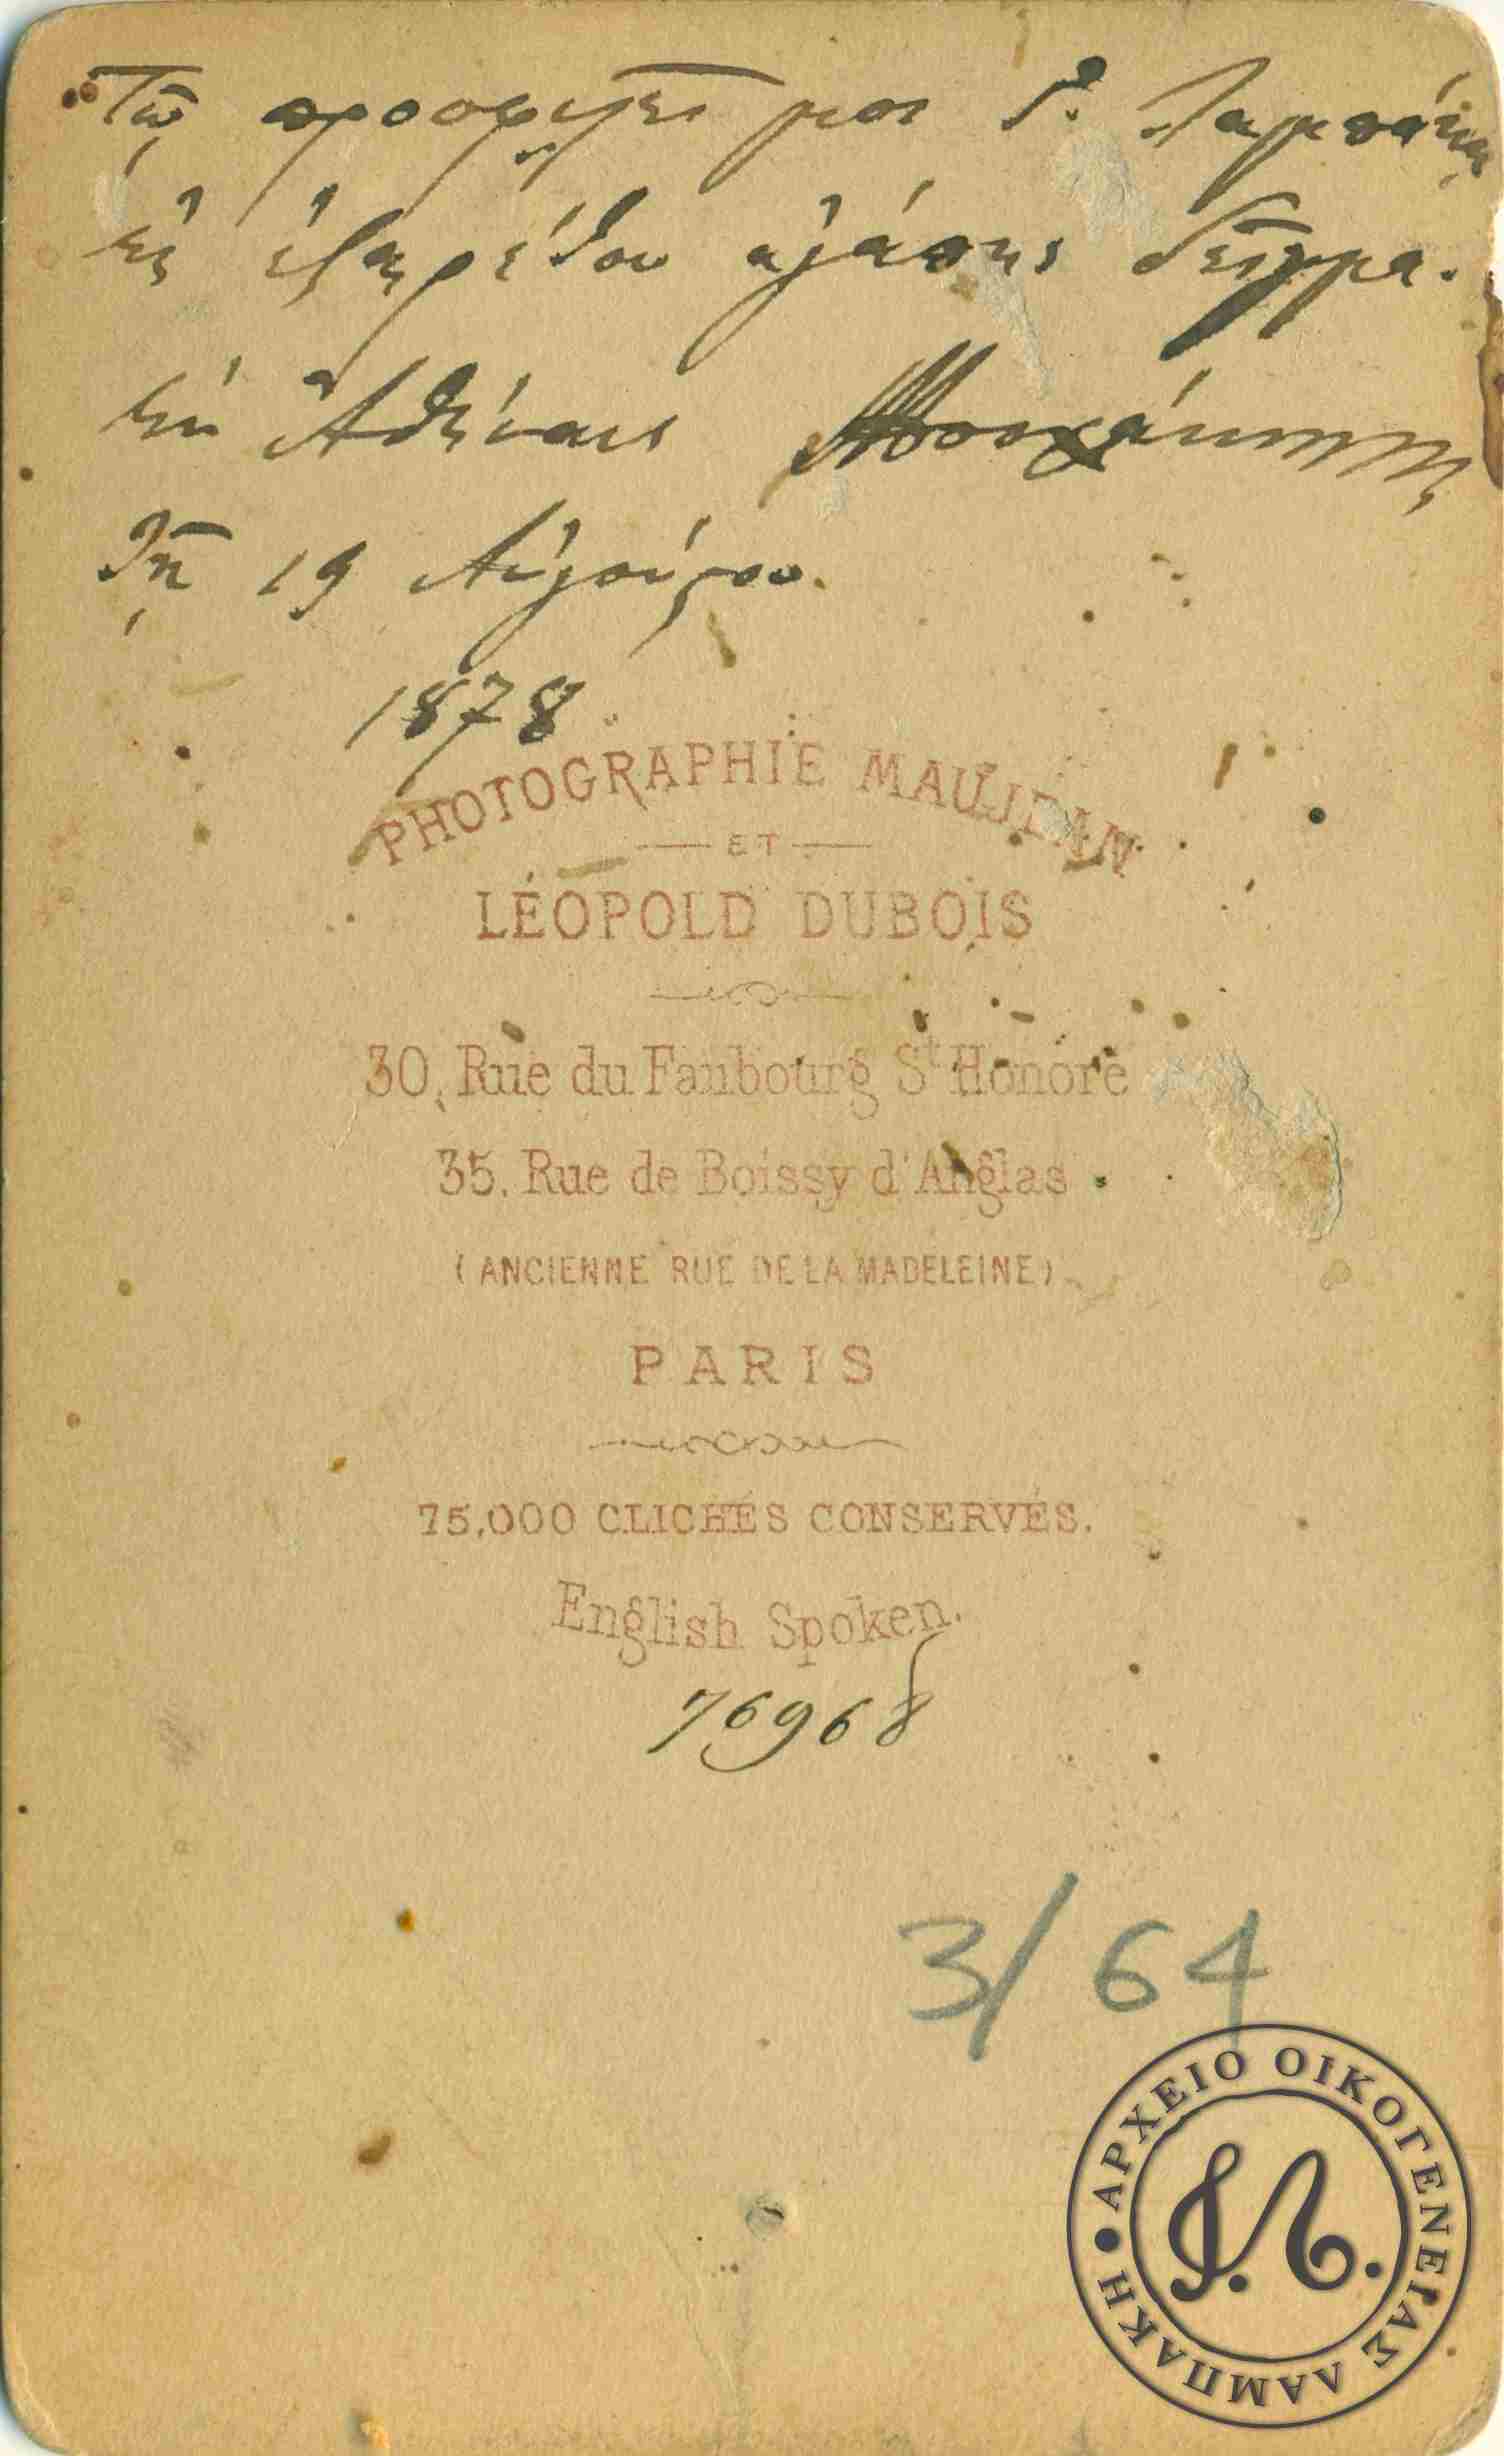 Τῷ προσφιλεῖ μοι Γ. Λαμπάκῃ
εἰς ἐξαιρέτου ἀγάπης δεῖγμα.
Ἐν Ἀθήναις Μοσχάκης
Τῇ 19 Αὐγούστου
1878
PHOTOGRAPHIE MAUJEAN
ET
LÉOPOLD DUBOIS
30, Rue du Faubourg St Honoré
35, Rue de Boissy d'Anglas
(ANCIENNE RUE DE LA MADELEINE)
PARIS
75,000 CLICHÉS CONSERVÉS.
English Spoken.
76968
3/64
ΑΡΧΕΙΟ ΟΙΚΟΓΕΝΕΙΑΣ ΛΑΜΠΑΚΗ